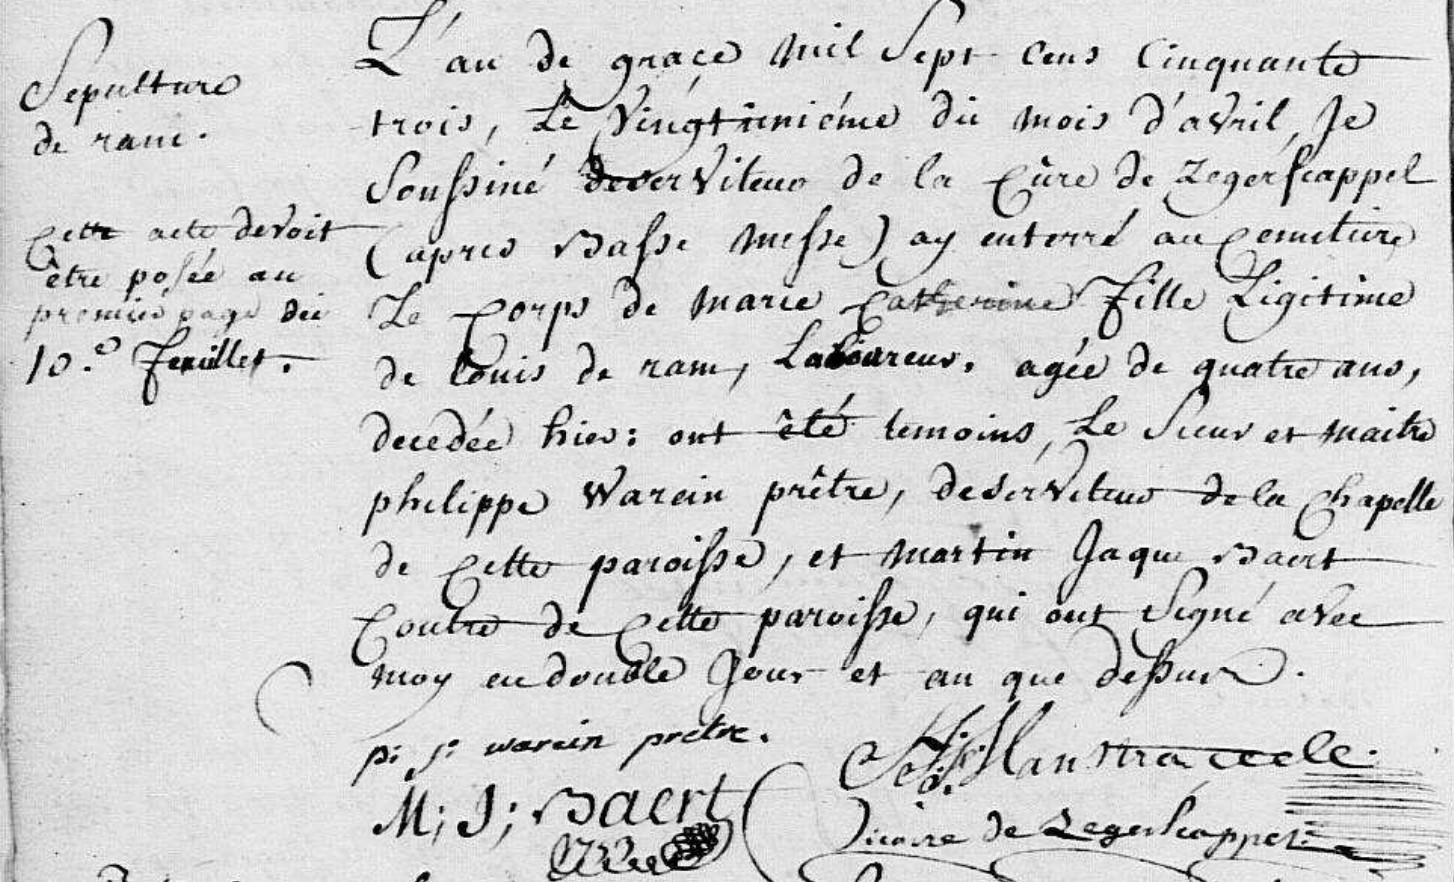 Sepulture
de ram.
Cette acte devoit
être posée au
premier page du
10.e feuillet.
L'an de grace mil Sept cens Cinquante
trois, Le Vingtuniéme du mois d'avril, Je
Soussiné deserviteur de la Cûre de Zegerscappel
(apres Basse messe) ay enterré au Cemetiere
Le Corps de marie Catherine fille Ligitime
de Louis de ram, Laboureur, agée de quatre ans,
decedée hier: ont été temoins, Le Sieur et maitre
philippe Warein prêtre, deserviteur de la Chapelle
de Cette paroisse, et martin Jaque Baert
Coutre de Cette paroisse, qui ont Signé avec
moy en double Jour et an que dessus.
p: j: warein prêtre.
M; J; Baert
vicaire de Zegerscappel